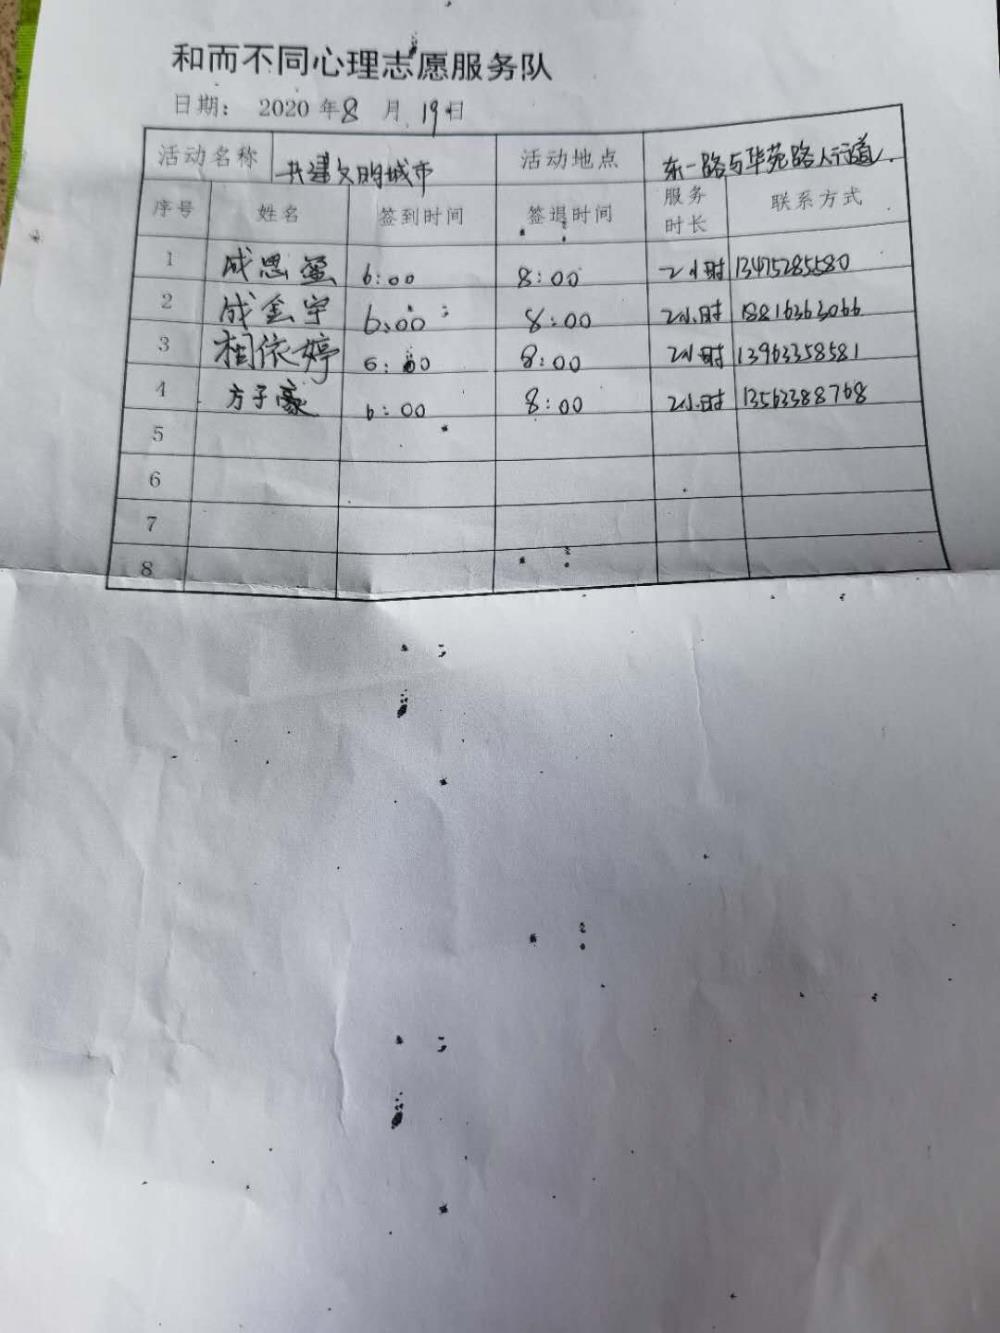 和而不同心理志愿服务队
日期： 2020 年 8 月 19 日
活动名称 共建文明城市 活动地点 东一路与华苑路人行道.
序号 姓名 签到时间 签退时间 服务时长 联系方式
1 成思蛍 6:00 8:00 2小时 13475285580
2 成金宇 6:00 8:00 2小时 18816363066
3 相依婷 6:00 8:00 2小时 13963358581
4 方子豪 6:00 8:00 2小时 13563388768
5
6
7
8